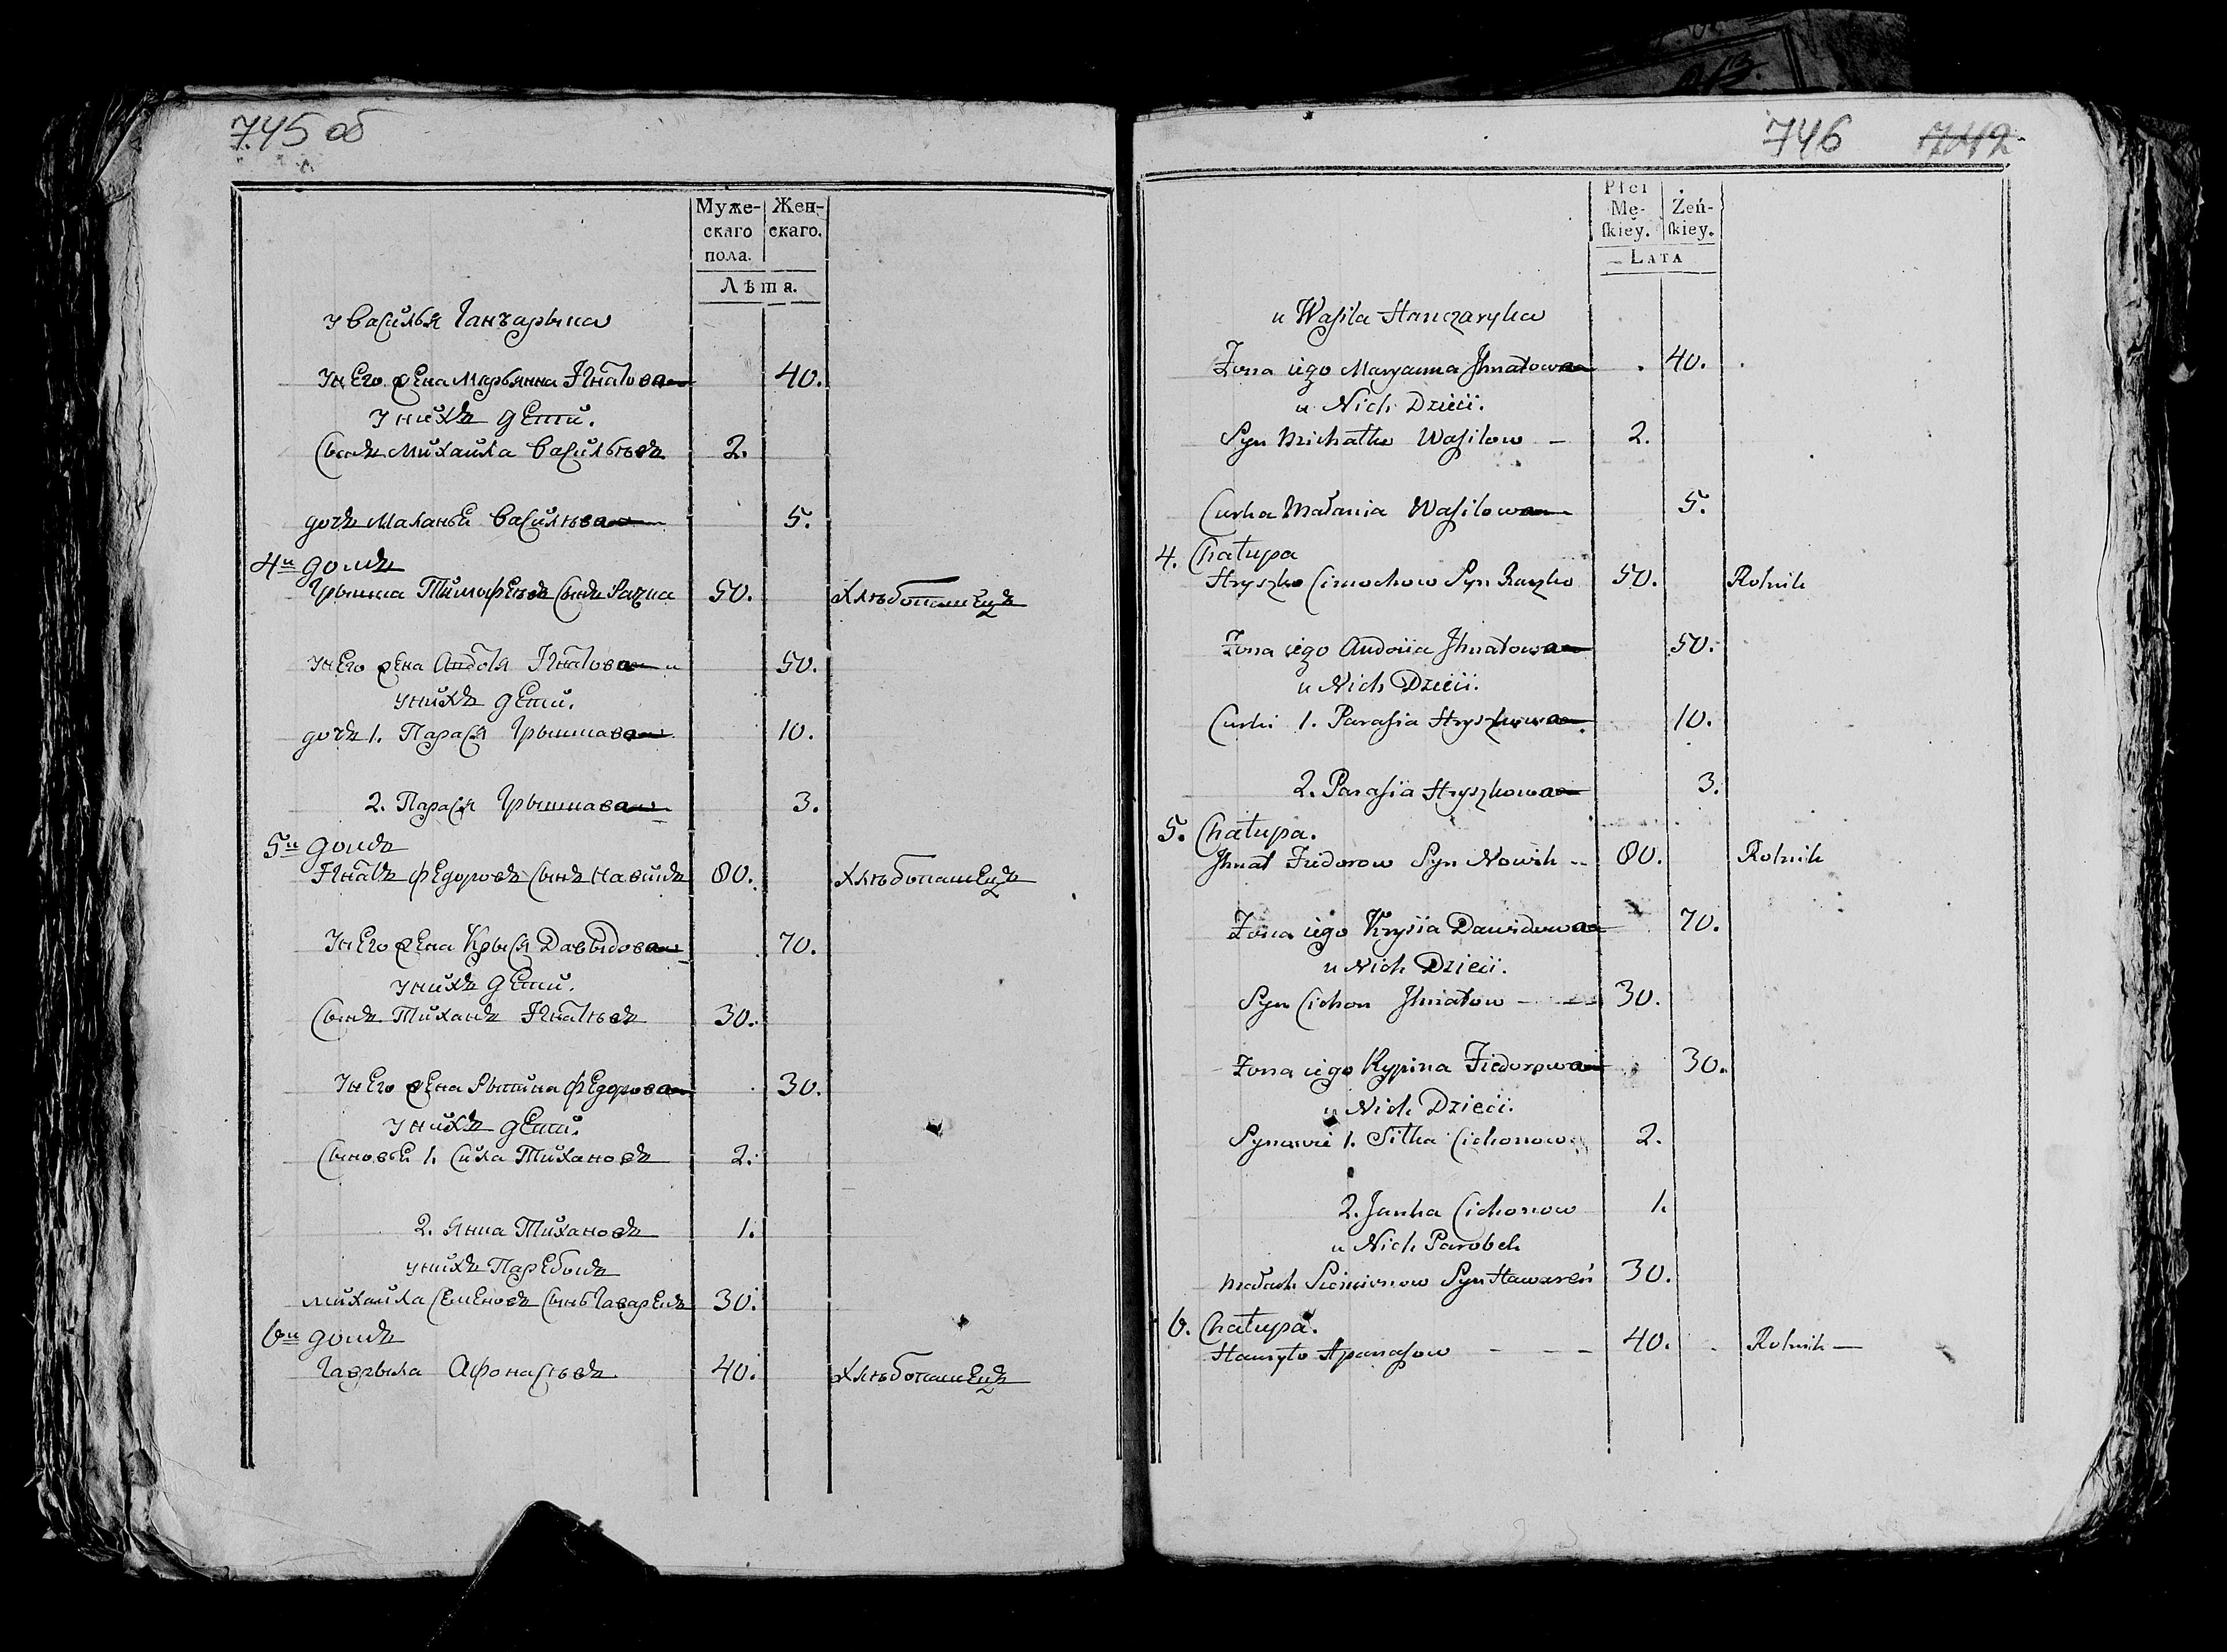 745 об
Муже-
скаго
пола.
Жен-
скаго.
Лѣта.
у Василья Ганчарыка
у Его жена Марьянна Игнатова 40.
у нихъ дети.
Сынъ Михайла Васильевъ 2.
дочь Маланья Васильева 5.
4й домъ
Грышка Тимофеевъ Сынъ 50. Хлѣбопашецъ
у Его жена Авдотя Игнатова 50.
у нихъ дети.
дочь 1. Парася Грышкава 10.
2. Парася Грышкава 3.
5й домъ
Игнатъ Федоровъ Сынъ Навикъ 80. Хлѣбопашецъ
у Его жена Крыся Давыдова 70.
у нихъ дети.
Сынъ Тиханъ Игнатьевъ 30.
у Его жена Рыпина Федорова 30.
у нихъ дети.
Сыновьи 1. Сила Тихановъ 2.
2. Янка Тихановъ 1.
у нихъ Паребокъ
Михайла Семеновъ Сынъ 30.
6й домъ
Гаврыла Афонасьевъ 40. Хлѣбопашецъ
746 742
Płci
Mę-
ſkiey.
Żeń-
ſkiey.
Lata
u Wasila Hanczaryka
Żona iego Maryanna Jhnatowa 40.
u Nich Dzieci.
Syn Michałko Wasilow 2.
Curka Małania Wasilowa 5.
4. Chałupa
Hryszko Cimochow Syn 50. Rolnik
Żona iego Audocia Jhnatowa 50.
u Nich Dzieci.
Curki 1. Parasia Hryszkowa 10.
2. Parasia Hryszkowa 3.
5. Chałupa.
Jhnat Fiedorow Syn Nowik 80. Rolnik
Żona iego Krysia Dawidowa 70.
u Nich Dzieci.
Syn Cichon Jhnatow 30.
Żona iego Rypina Fiedorowa 30.
u Nich Dzieci.
Synowie 1. Siłka Cichonow 2.
2. Janka Cichonow 1.
u Nich Parobek
Syn 30.
6. Chałupa.
Hauryło Apanasow 40. Rolnik